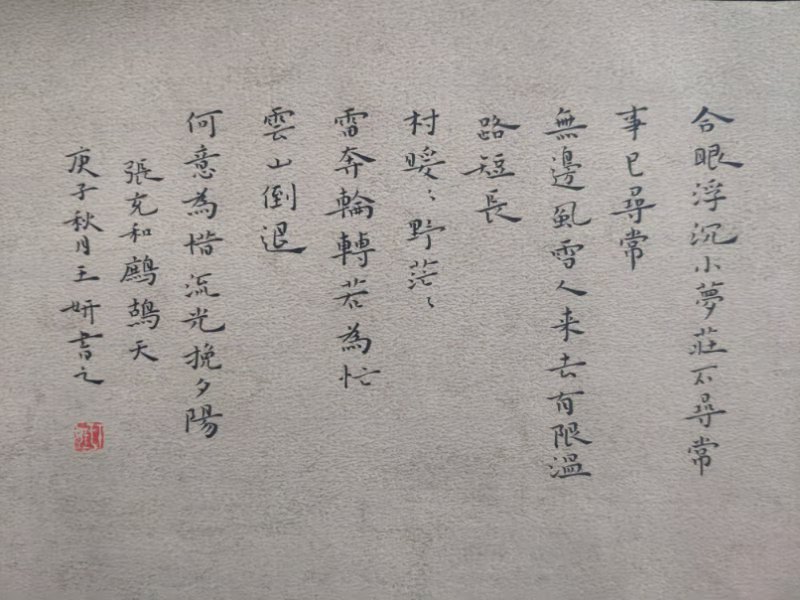 合眼浮沉小夢莊不尋常
事已尋常
無邊風雪人来去有限溫
路短長
村暖〻野茫〻
雷奔輪轉若為忙
雲山倒退
何意為惜流光挽夕陽
張充和鷓鴣天
庚子秋月王妍書之